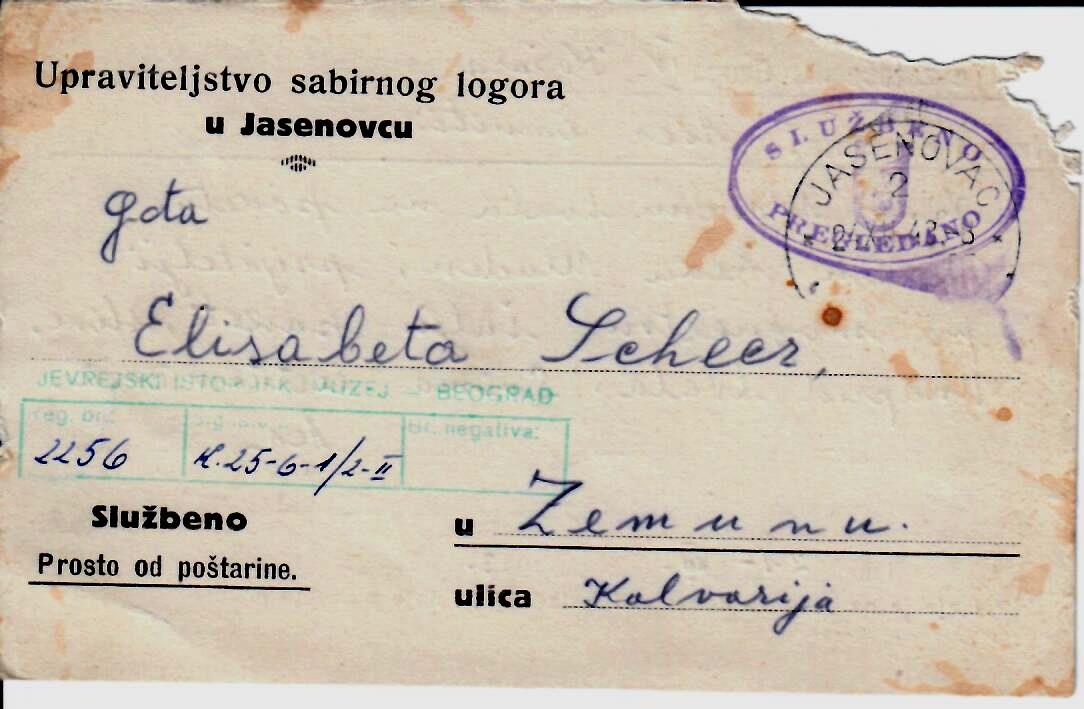 Upraviteljstvo sabirnog logora
u Jasenovcu
SLUŽBENO
PREGLEDANO
U
JASENOVAC
2
gđa
Elisabeta Scheer,
JEVREJSKI ISTORIJSKI MUZEJ — BEOGRAD
Reg. br.:
Br. negativa:
2256
K.25-6-1/2-II
Službeno
Prosto od poštarine.
u Zemunu.
ulica Kalvarija